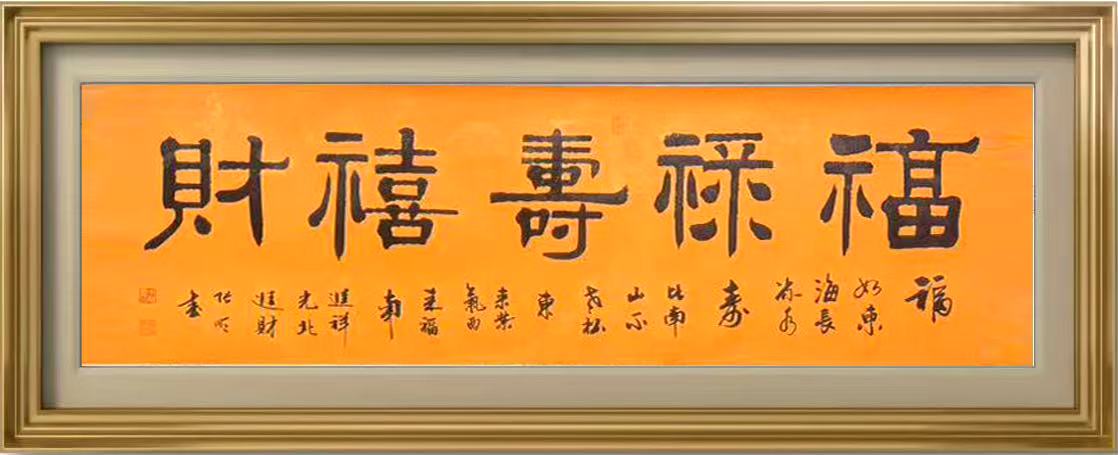 福禄壽禧財
福
如東
海長
流水
寿
比南
山不
老松
東
来紫
氣西
来福
南
進祥
光北
進財
书